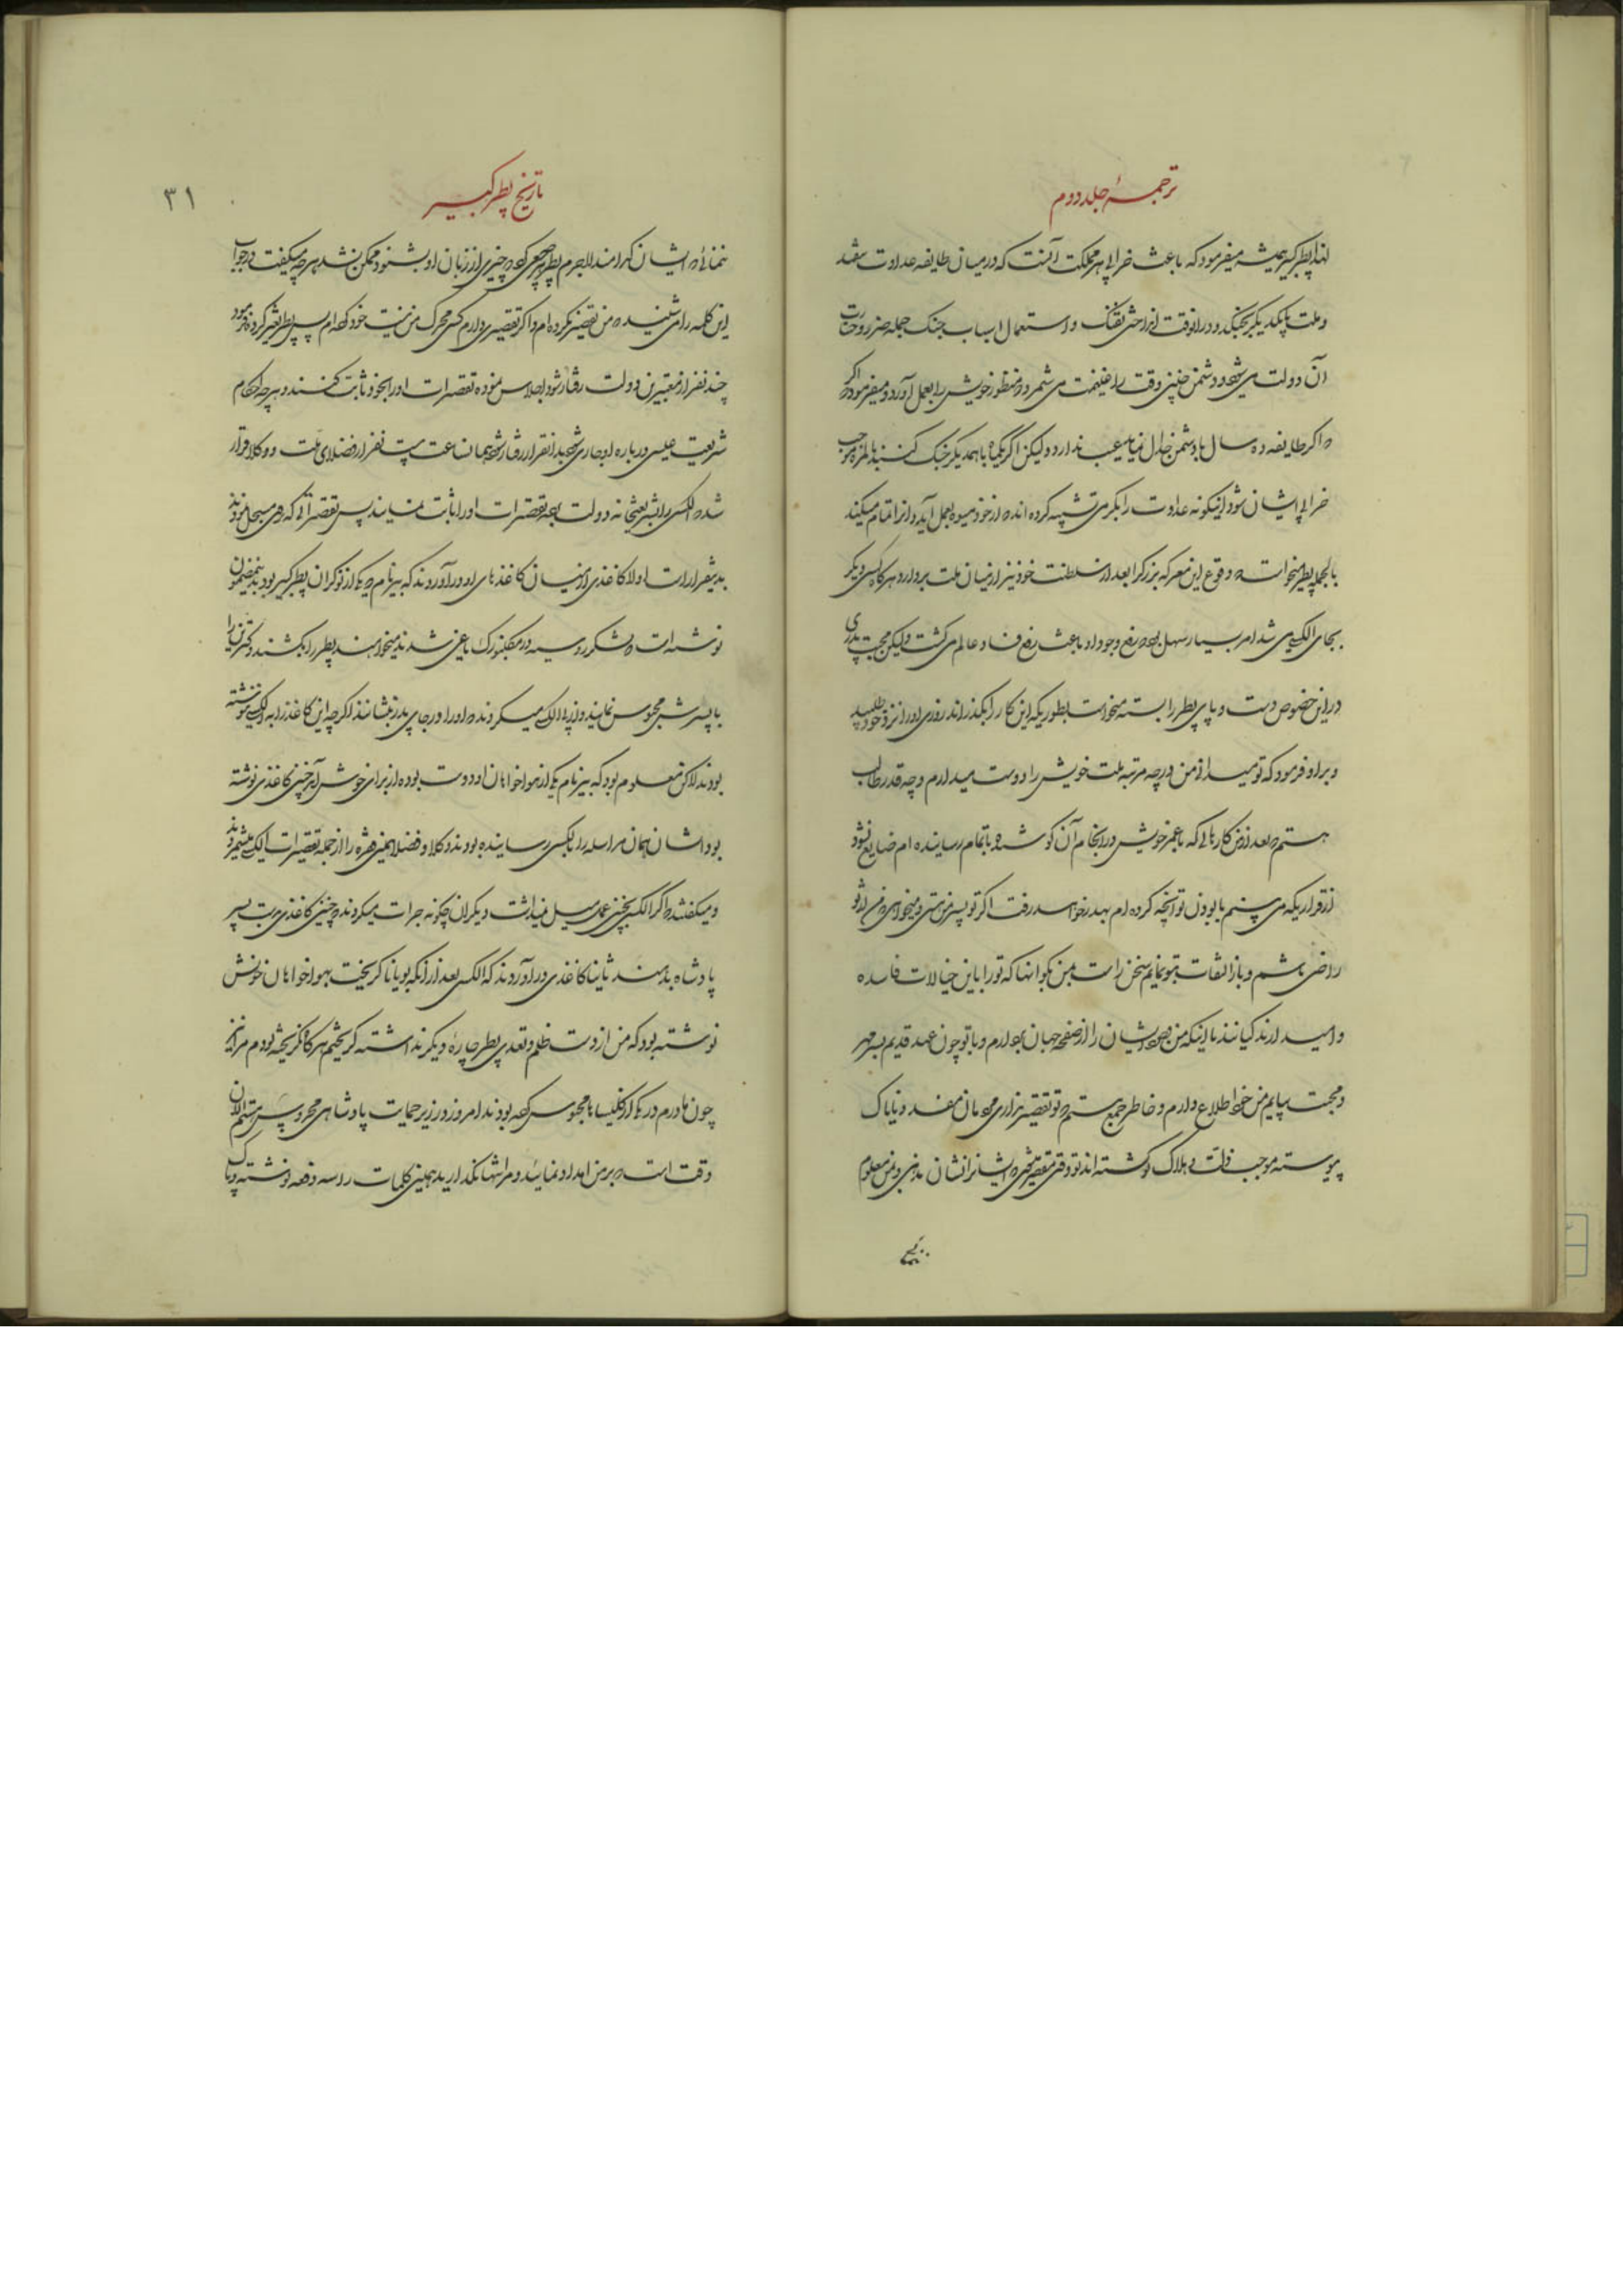 ترجمهٔ جلد دوم
لهذا پطر کبیر همیشه میفرمود که باعث خرابی هر مملکت آنست که در میان طایفه عداوت بیفتد
وملت با یکدیگر بجنگد و در آنوقت انداختن تفنگ و استعمال اسباب جنگ جمله ضرر و خسارت
آن دولت می شود و دشمن چنین وقت را غنیمت می شمرد و منظور خویش را بعمل آورد و میفرمود که
اگر طایفه ده سال با دشمن جدال نماید عیب ندارد ولیکن اگر یکماه با همدیگر جنگ کنند بالمره موجب
خرابی ایشان شود اینگونه عداوت را بکرمی تشبیه کرده اند که از خود میوه بعمل آید و آنرا تمام میکند
بالجمله پطر میخواست که وقوع این معرکه بزرگ را بعد از سلطنت خود نیز از میان ملت بردارد هرگاه کسی دیگر
بجای الکسی می شد امر بسیار سهل بود که رفع وجود او باعث رفع فساد عالم می گشت ولیکن محبت پدری
در این خصوص دست و پای پطر را بسته میخواست بطوریکه این کار را بگذراند روزی او را نزد خود طلبید
و براو فرمود که تو میدانی من در چه مرتبه ملت خویش را دوست میدارم و چه قدر طالب
هستم که بعد از من کارهائی که با عمر خویش در انجام آن کوشیده باتمام رسانیده ام ضایع نشود
از قراریکه می بینم با بودن تو آنچه کرده ام بهدر خواهد رفت اگر تو پسر من هستی و میخواهی من از تو
راضی باشم و باز التفات بتو نمایم سخن راست بمن بگو آنها که تو را باین خیالات فاسده
وامیدارند کیانند با اینکه من وجود ایشان را از صفحه جهان بردارم و با تو چون عهد قدیم بسر مهر
و محبت بیایم من خود اطلاع دارم و خاطر جمع هستم که تو تقصیر نداری مردمان مفسد و ناپاک
پیوسته موجب ذلت و هلاک تو گشته اند تو وقتی مقصر میشوی که ایشانرا نشان ندهی و بمن معلوم
نمائی
تاریخ پطر کبیر
۳۱
ننمائی که ایشان کدامند لاجرم پطر هر چه سعی کرد که چیزی از زبان او بشنود ممکن نشد هر چه میگفت در جواب
این کلمه را می شنید که من تقصیر نکرده ام و اگر تقصیری دارم کسی محرک من نیست خود کرده ام پس پطر تغیر کرده فرمود
چند نفر از معتبرین دولت رفتار شود اجلاس نموده تقصیرات او را بخود ثابت کنند و هر چه احکام
شریعت عیسی درباره او جاری شود بدانقرار رفتار شود همان ساعت بیست نفر از فضلای ملت و وکلا قرار
شده الکسی را بشریعتخانه دولت برده تقصیرات او را اثبات نمایند پس تقصیراتی که در مجلس نمودند
بدینقرار است اولا کاغذی از میان کاغذهای او در آوردند که بیرنام یکی از نوکران پطر کبیر بود بدینمضمون
نوشته است که لشکر روسیه در مکلنبورک یاغی شدند میخواهند پطر را بکشند و کترین را
با پسرش محبوس نمایند و از برای الکسی میکردند که او را در جای پدر بنشانند اگرچه این کاغذ را به الکسی ننوشته
بودند لاکن معلوم بود که بیرنام یکی از هواخواهان او دوست بوده از برای خوش آمد چنین کاغذی نوشته
بود ایشان همان مراسله را بالکسی رسانیده بودند وکلا و فضلا همین فقره را از جمله تقصیرات الکسی شمردند
و میگفتند که اگر الکسی بچنین عملی میل نمیداشت دیگران چگونه جرات میکردند که چنین کاغذی بدست پسر
پادشاه بدهند ثانیا کاغذی در آوردند که الکسی بعد از آنکه بویانا گریخت بهواخواهان خویش
نوشته بود که من از دست ظلم و تعدی پطر چاره دیگر نداشته گریختم هرگاه نگریخته بودم مرا نیز
چون مادرم در یکی از کلیساها محبوس کرده بودند امروز در زیر حمایت پادشاهی محروس هستم الآن
وقت است که بر من امداد نمائید و مرا تنها نگذارید همین کلمات را سه دفعه نوشته و پاک